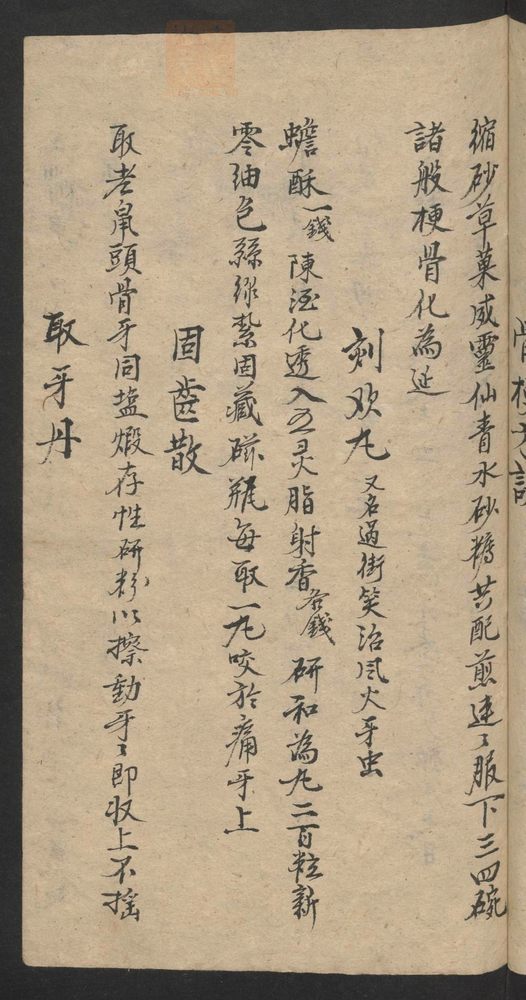 縮砂草菓威靈仙青水砂糖共配煎連々服下三四碗
諸般梗骨化為涎
刻欢丸 又名過街笑治風火牙虫
蟾酥一錢陳酒化透入五灵脂射香各錢研和為丸二百粒新
零紬色絲線紮固藏磁瓶每取一丸咬於痛牙上
固齒散
取老鼠頭骨牙同塩煅存性研粉以擦動牙々即收上不摇
取牙丹